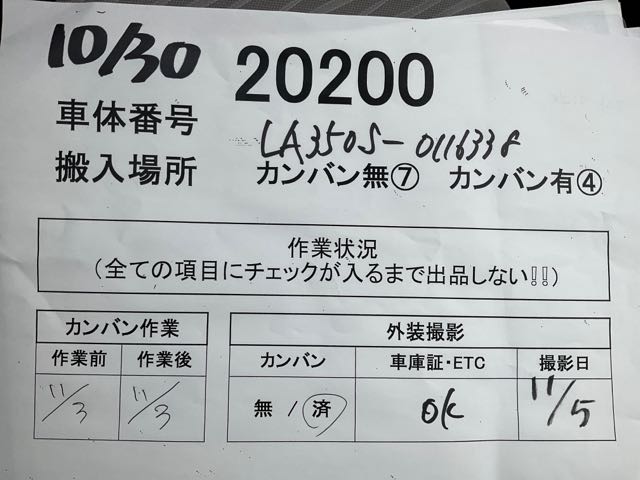 10/30 20200
車体番号 LA350S-0116338
搬入場所 カンバン無⑦ カンバン有④
作業状況
(全ての項目にチェックが入るまで出品しない!!)
カンバン作業 外装撮影
作業前 作業後 カンバン 車庫証・ETC 撮影日
11/3 11/3 無 / 済 OK 11/5